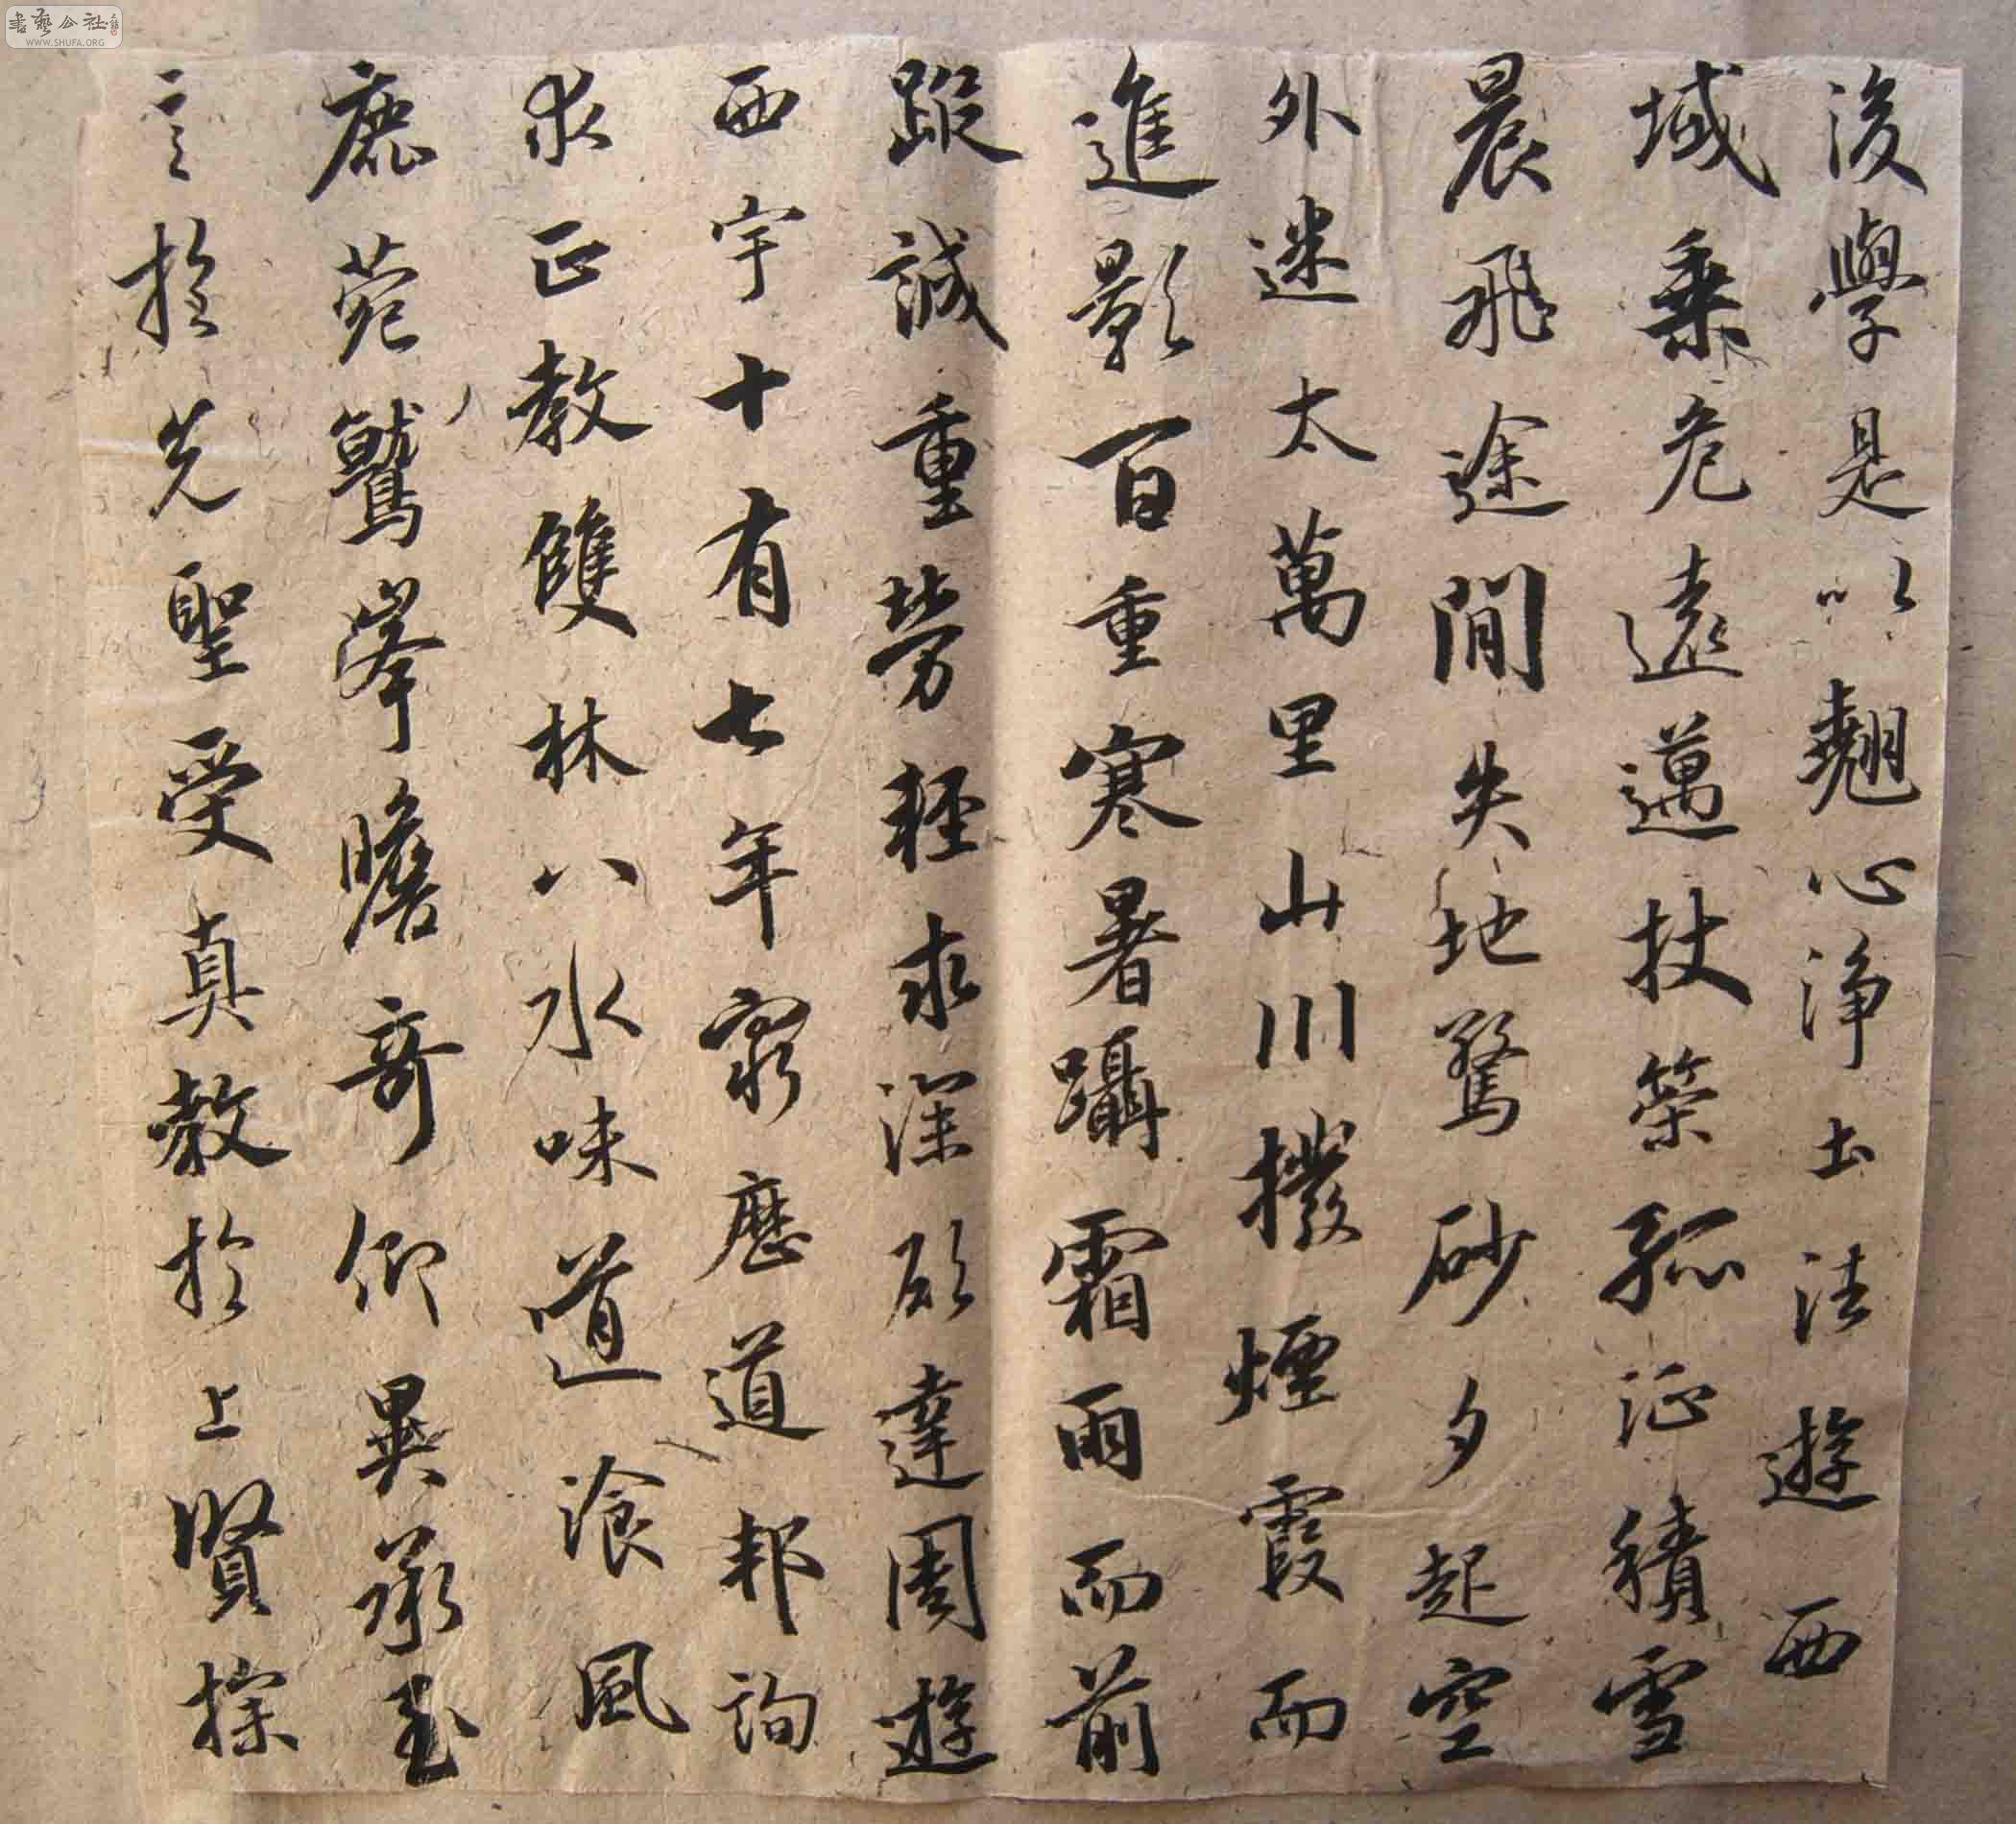 後學是以翹心淨土法遊西
域乘危遠邁杖策孤征積雪
晨飛途間失地驚砂夕起空
外迷太萬里山川撥煙霞而
進影百重寒暑躡霜雨而前
蹤誠重勞輕求深欲達周遊
西宇十有七年窮歷道邦詢
求正教雙林八水味道飡風
鹿菀鷲峯瞻奇仰異承至
言於先聖受真教於上賢探
書藝公社
WWW.SHUFA.ORG